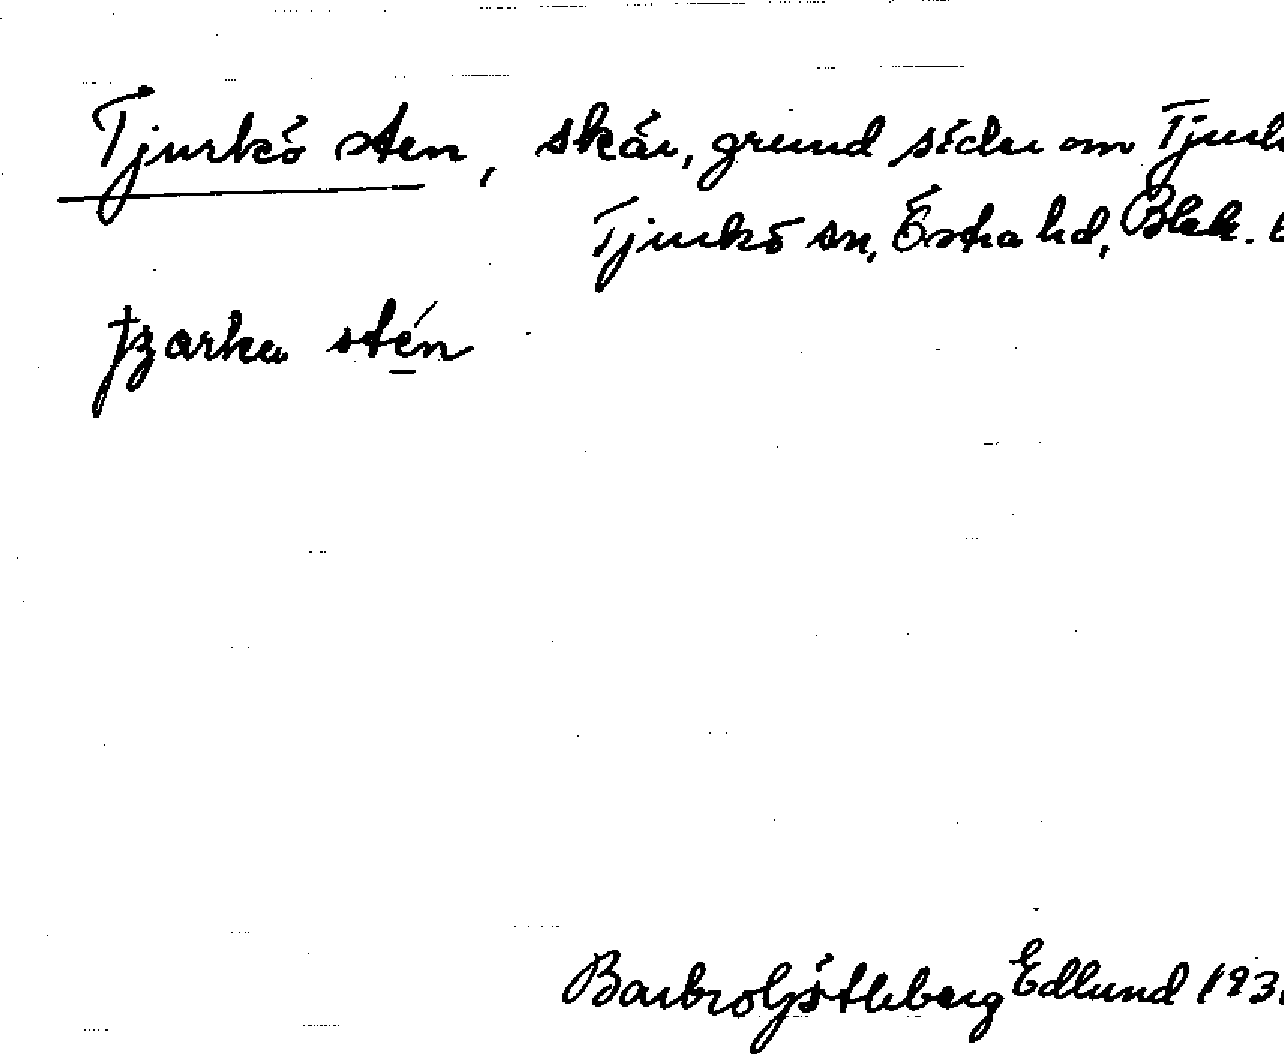 Tjurkö sten, skär, grund söder om Tjurk
Tjurkö sn, Östra hd, Blek.
stén
Barbro Edlund 193